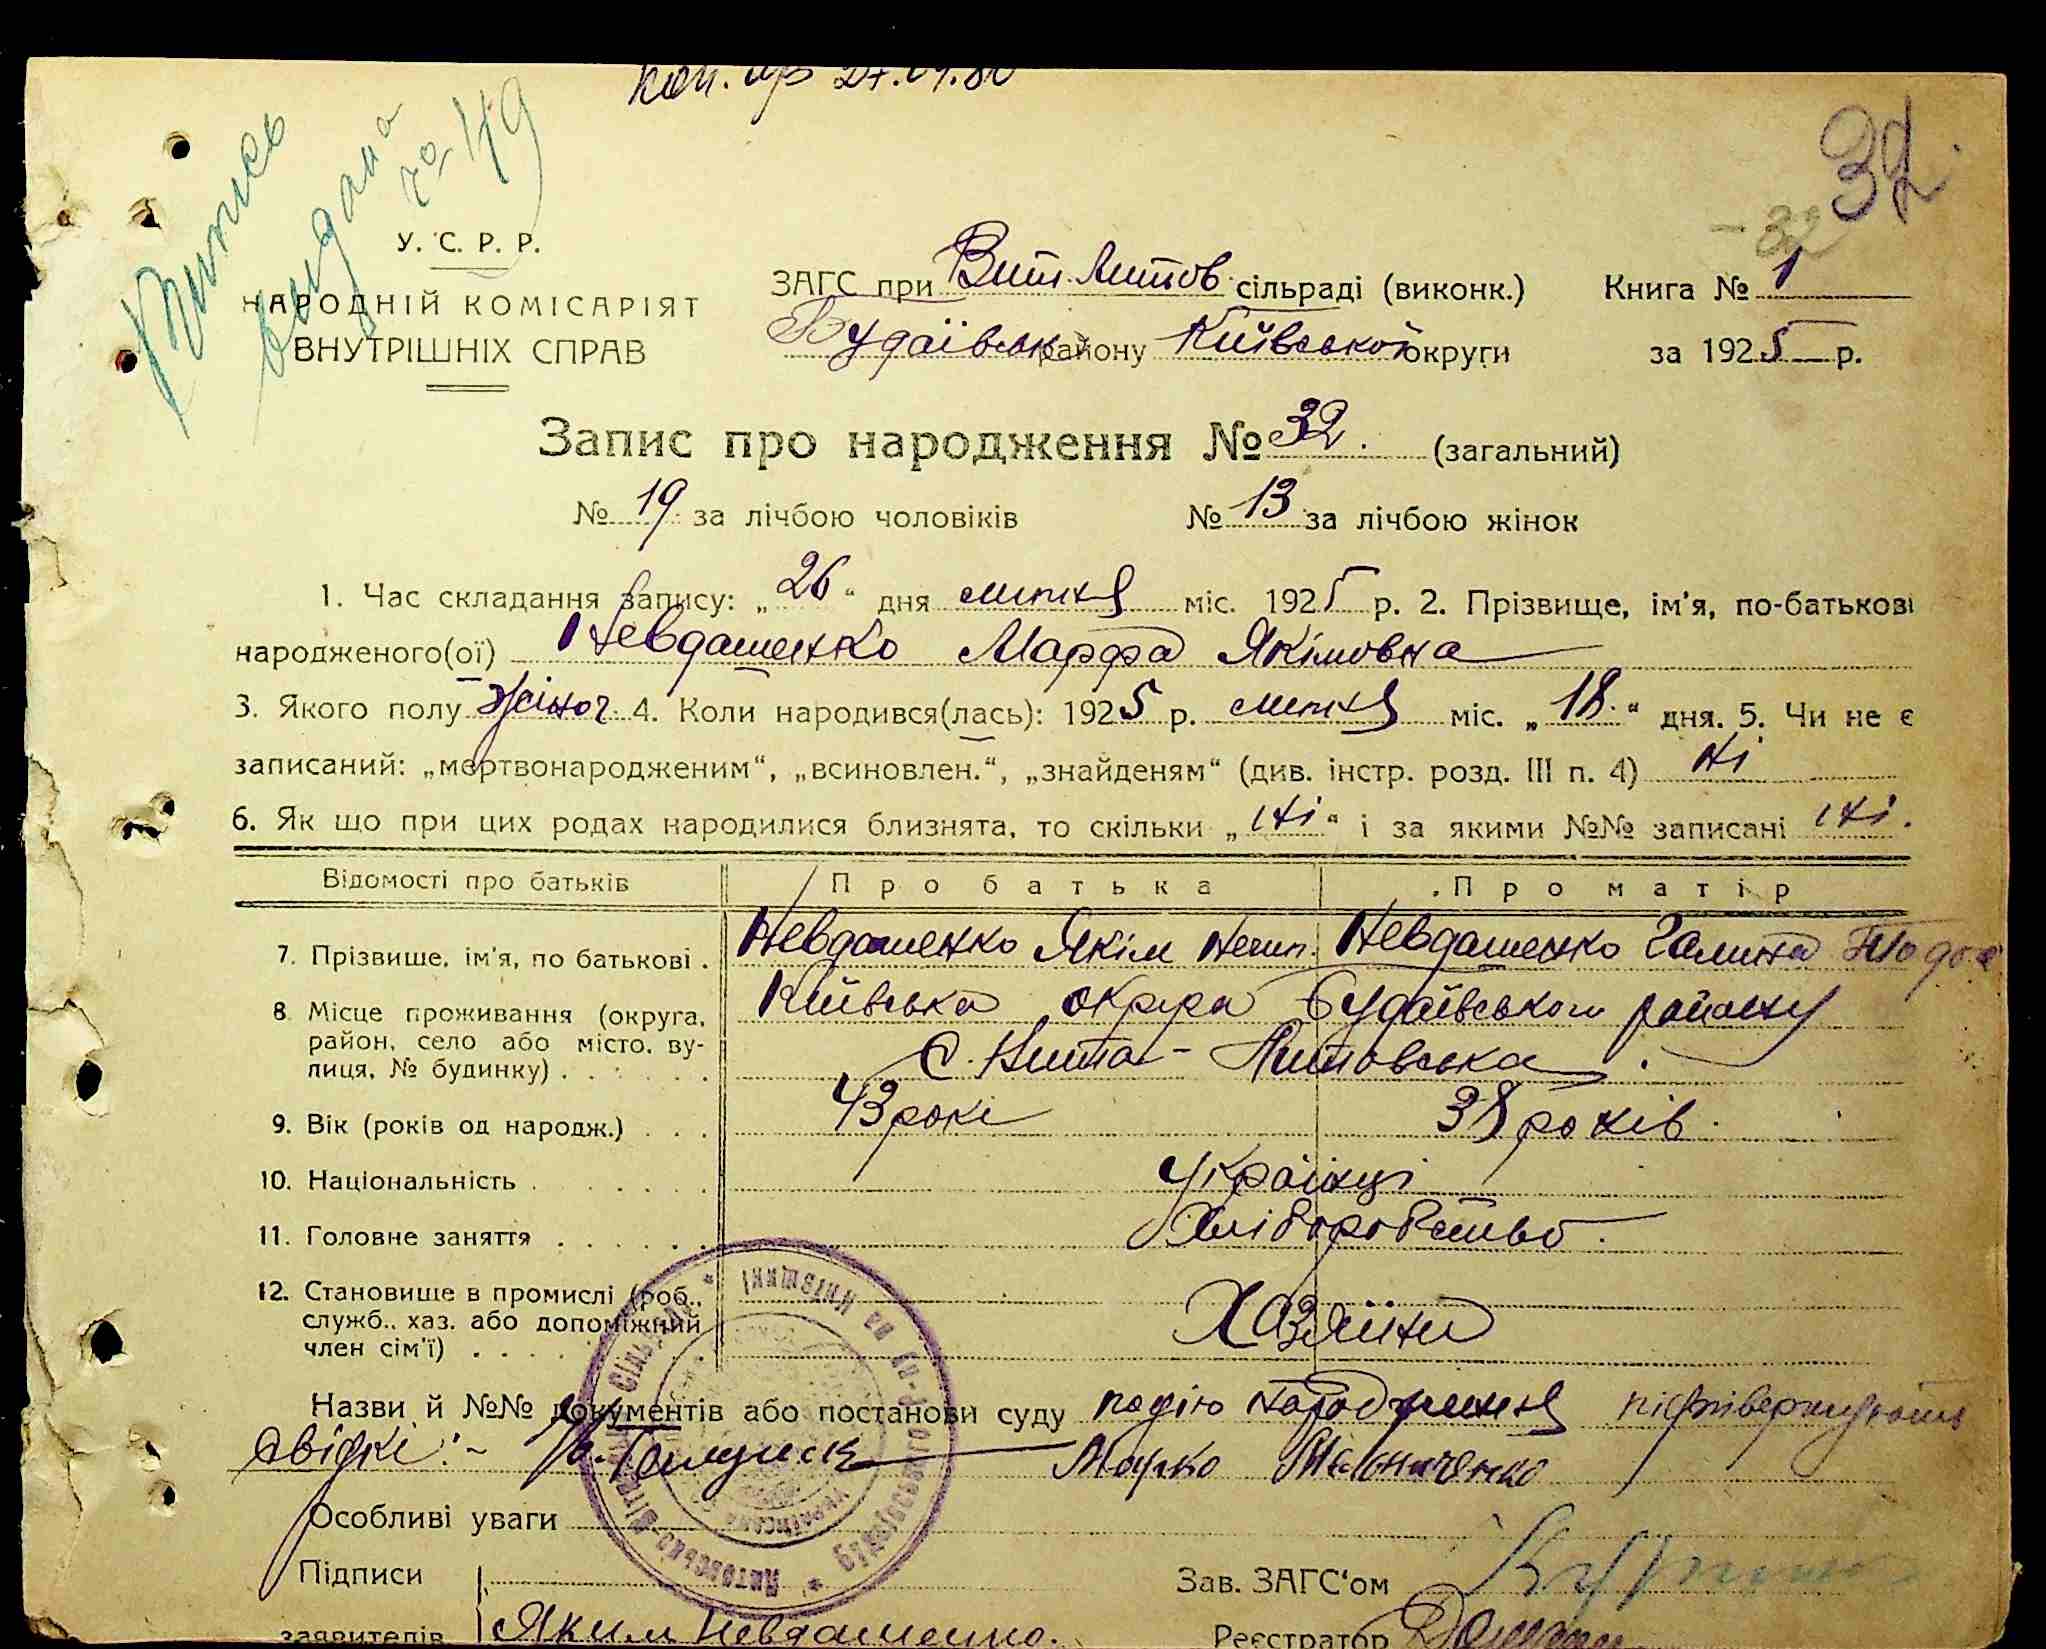 32
Випись
видана
49
У. С. Р. Р.
НАРОДНІЙ КОМІСАРІЯТ
ВНУТРІШНІХ СПРАВ
32
ЗАГС при Вит Литов сільраді (виконк.) Книга № 1
Будаївськ району Київської округи за 1925 р.
Запис про народження № 32. (загальний)
№ 19 за лічбою чоловіків № 13 за лічбою жінок
1. Час складання запису: „26“ дня липня міс. 1925 р. 2. Прізвище, ім'я, по-батькові
народженого(ої) Невдашенко Марфа Якімовна
3. Якого полу жіноч 4. Коли народився(лась): 1925 р. липня міс. „18.“ дня. 5. Чи не є
записаний: „мертвонародженим“, „всиновлен.“, „знайденям“ (див. інстр. розд. III п. 4) ні
6. Як що при цих родах народилися близнята, то скільки „ні“ і за якими №№ записані ні.
Відомості про батьків Про батька Про матір
7. Прізвише, ім'я, по батькові . Невдашенко Якім Нечип. Невдашенко Галина
8. Місце проживання (округа, Київська округа Будаївського району
район, село або місто, ву- с. Вита-Литовська.
лиця, № будинку) . . . . . .
9. Вік (років од народж.) . . . 43 рокі 38 років.
10. Національність . . . . . . українці
11. Головне заняття . . . . . . Хліборобство.
12. Становише в промислі (роб.,
служб., хаз. або допоміжний Хазяїни
член сім'ї) . . . .
Назви й №№ документів або постанови суду подію народження підтвержують
свідкі:- Марко
Особливі уваги
Підписи Зав. ЗАГС'ом
заявителів Яким Невдашенко. Реєстратор